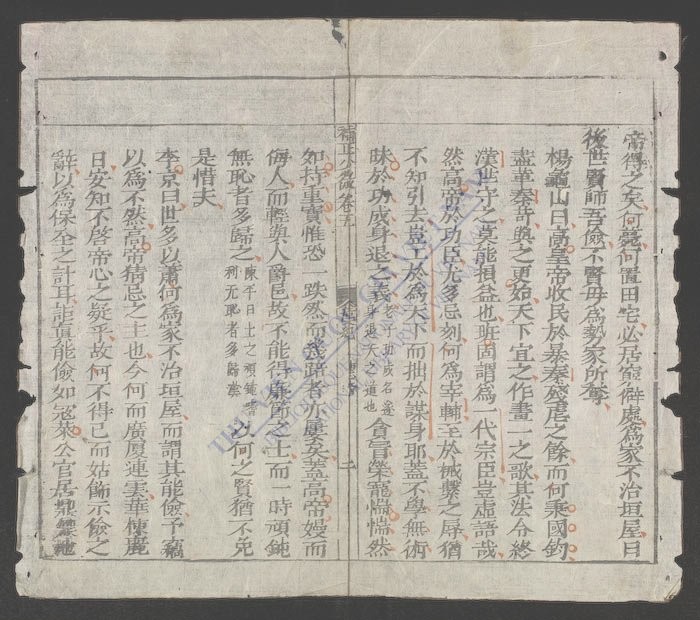 帝得之矣何薨何置田宅必居窮僻處為家不治垣屋曰
後世賢師吾儉不賢毋爲勢家所奪
楊龜山曰高皇帝收民於暴秦虐之餘而何秉國鈞
盡革秦苛與之更始天下宜之作畫一之歌其法令終
漢世守之莫能損益也班固謂爲一代宗臣豈虛語哉
然高帝於功臣尤多忌刻何爲宰輔至於械繫之辱猶
不知引去豈工於為天下而拙於謀身耶蓋不學無術
昧於功成身退之義老子功成名遂身退天之道也貪冒榮寵惴惴然
補正小
二
如持重寶惟恐一跌然而幾踣者亦屢矣蓋高帝嫚而
侮人而輕與人爵邑故不能得廉節之士而一時頑鈍
無恥者多歸之陳平曰士之頑鈍嗜利无恥者多歸漢以何之賢猶不免
是惜夫
李京曰世多以蕭何為家不治垣屋而謂其能儉予竊
以為不然高帝猜忌之主也今何而廣厦連雲華棟麗
日安知不啓帝心之疑乎故何不得已而姑飾示儉之
辭以為保全之計耳詎眞能儉如寇萊公官居鼎鼐